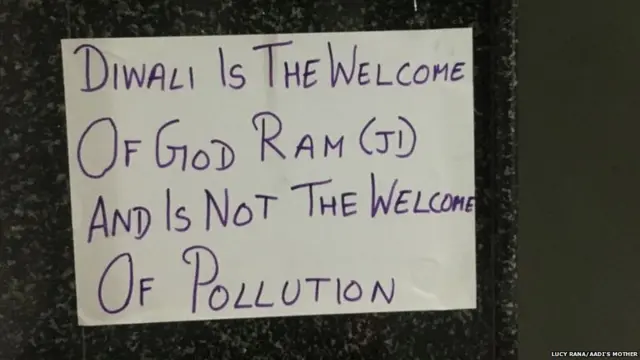 DIWALI IS THE WELCOME
OF GOD RAM (JI)
AND IS NOT THE WELCOME
OF POLLUTION
LUCY RANA/AADI'S MOTHER